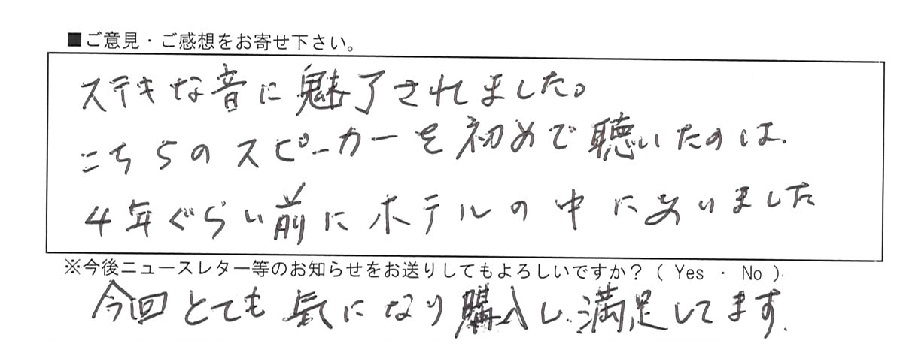 ■ご意見・ご感想をお寄せ下さい。
ステキな音に魅了されました。
こちらのスピーカーを初めで聴いたのは、
4年ぐらい前にホテルの中にありました
※今後ニュースレター等のお知らせをお送りしてもよろしいですか？（ Yes ・ No ）
今回とても気になり購入し満足してます.